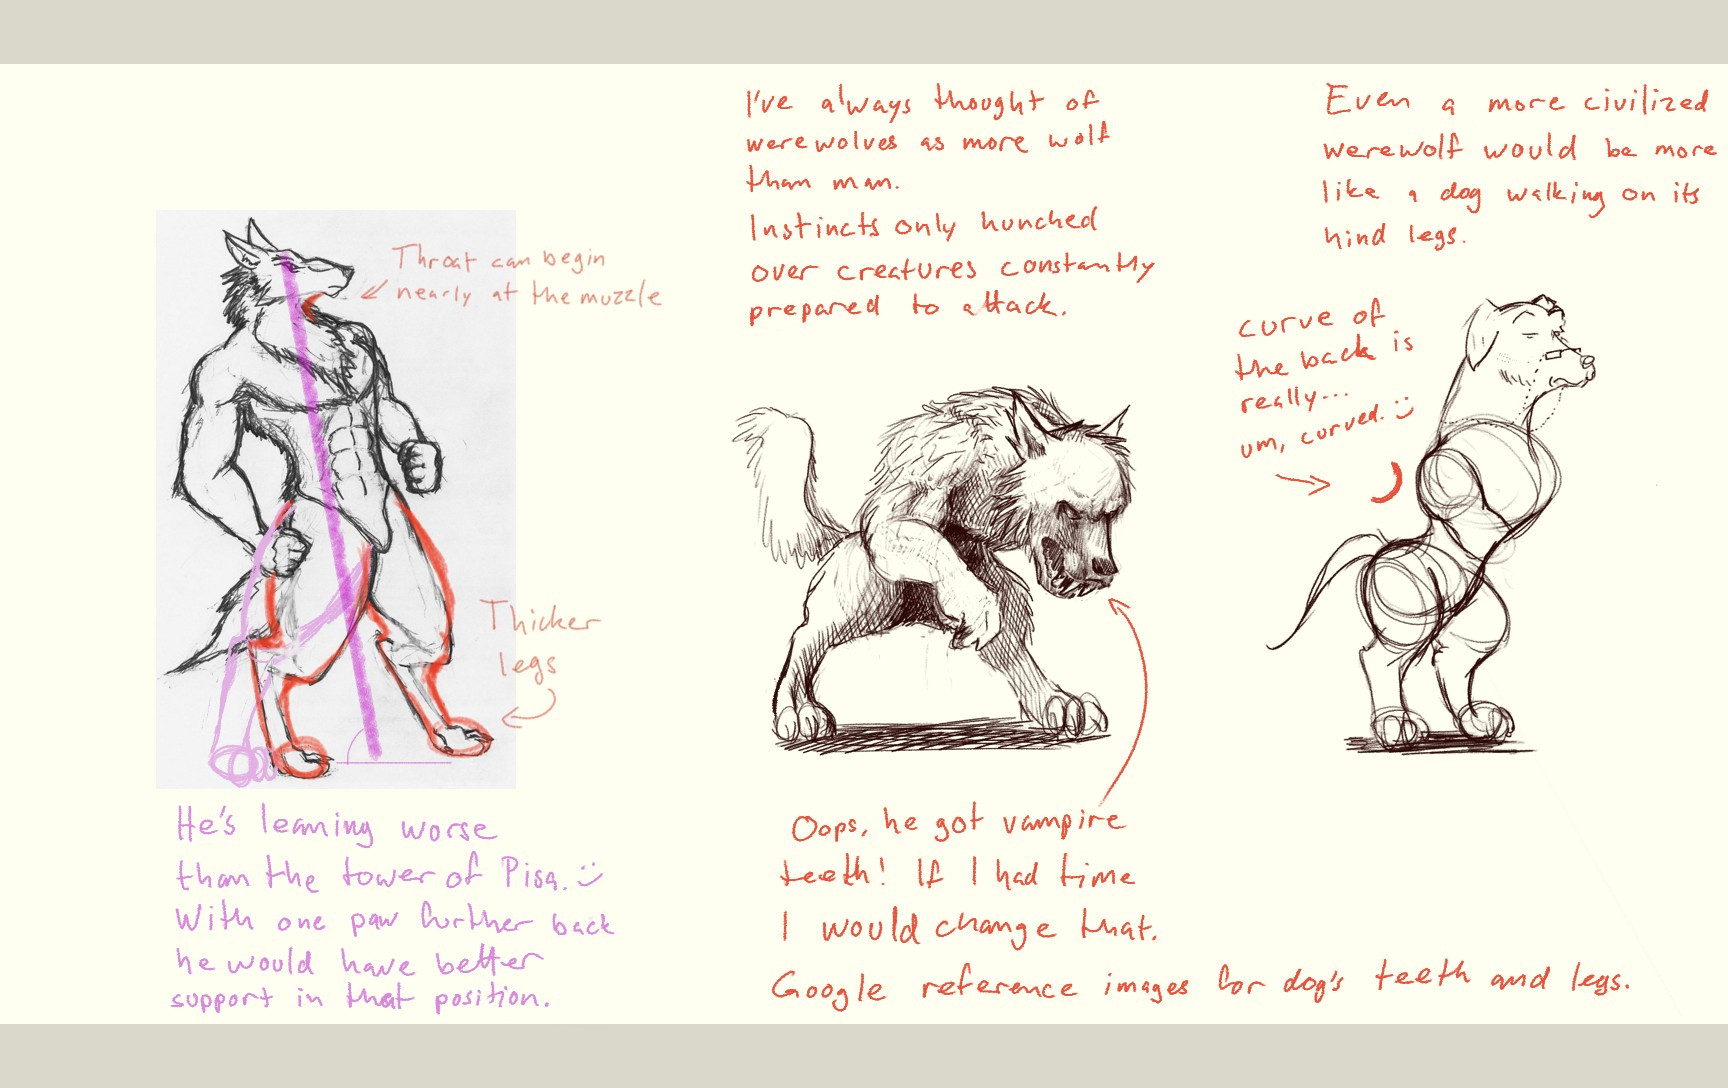 Throat can begin
nearly at the muzzle
Thicker
legs
He's leaning worse
than the tower of Pisa. :)
With one paw further back
he would have better
support in that position.
I've always thought of
werewolves as more wolf
than man.
Instincts only hunched
over creatures constantly
prepared to attack.
Oops, he got vampire
teeth! If I had time
I would change that.
Google reference images for dog's teeth and legs.
Even a more civilized
werewolf would be more
like a dog walking on its
hind legs.
curve of
the back is
really...
um, curved. :)